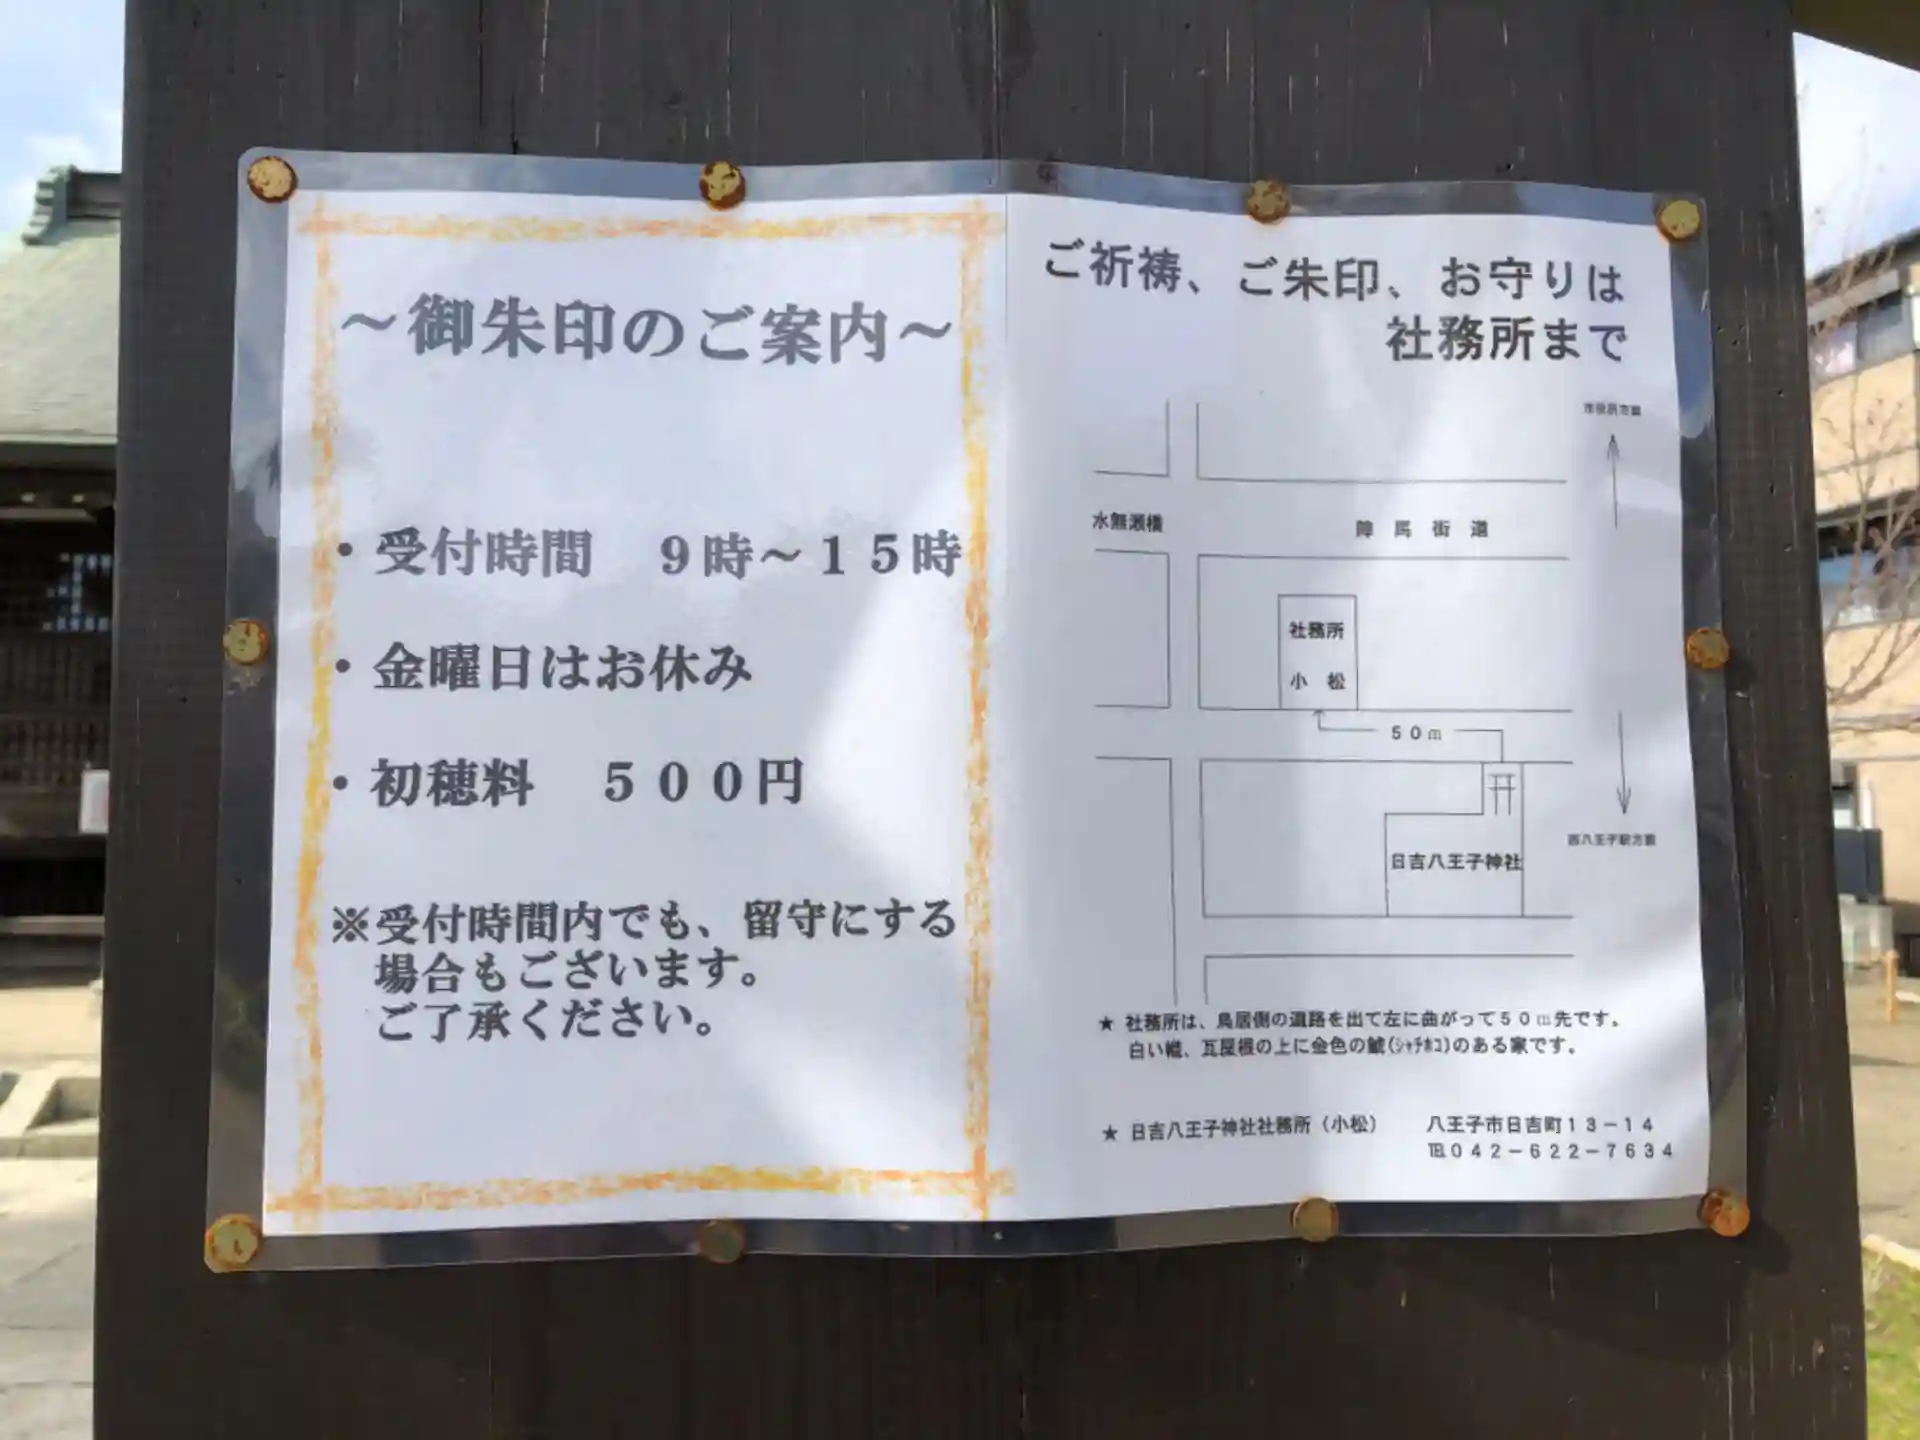 ～御朱印のご案内～
・受付時間　９時～１５時
・金曜日はお休み
・初穂料　５００円
※受付時間内でも、留守にする
場合もございます。
ご了承ください。
ご祈祷、ご朱印、お守りは
社務所まで
水無瀬橋
陣馬街道
社務所
小松
５０ｍ
日吉八王子神社
西八王子駅方面
★ 社務所は、鳥居側の道路を出て左に曲がって５０ｍ先です。
白い幟、瓦屋根の上に金色の鯱(ｼｬﾁﾎｺ)のある家です。
★ 日吉八王子神社社務所（小松）　八王子市日吉町１３－１４
℡０４２－６２２－７６３４